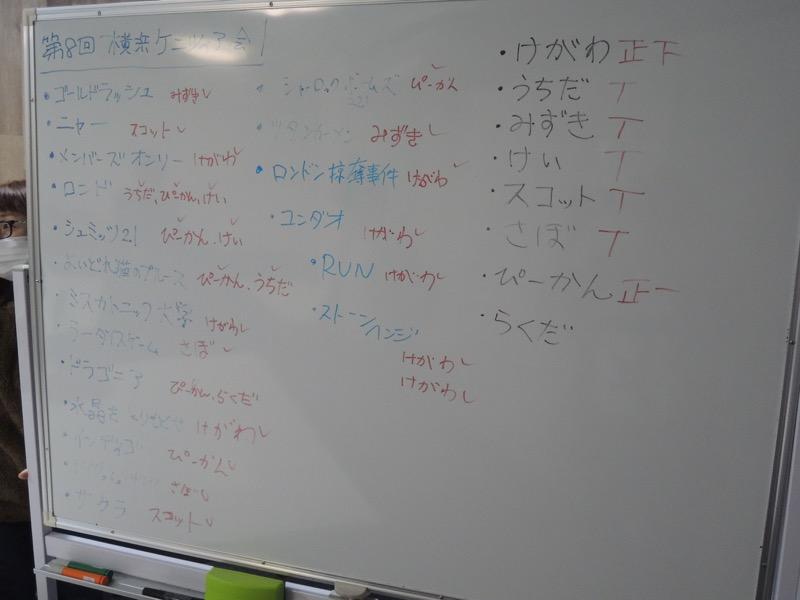 第8回 横浜ケニツィア会
・ゴールドラッシュ みずき
・ニャー スコット
・メンバーズオンリー けがわ
・ロンド うちだ、ぴーかん、けい
・シュミッツ21 ぴーかん、けい
・よいどれ猫のブルース ぴーかん、うちだ
・ミスカトニック大学 けがわ
・ラータイスゲーム さぼ
・ドラゴニア ぴーかん、らくだ
・水晶を けがわ
・インディゴ ぴーかん
さぼ
・サクラ スコット
・シャーロックホームズ ぴーかん
・ツタンカーメン みずき
・ロンドン掠奪事件 けがわ
・コンダオ けがわ
・RUN けがわ
・ストーンヘンジ
けがわ
けがわ
・けがわ 正下
・うちだ 丅
・みずき 丅
・けい 丅
・スコット 丅
・さぼ 丅
・ぴーかん 正一
・らくだ